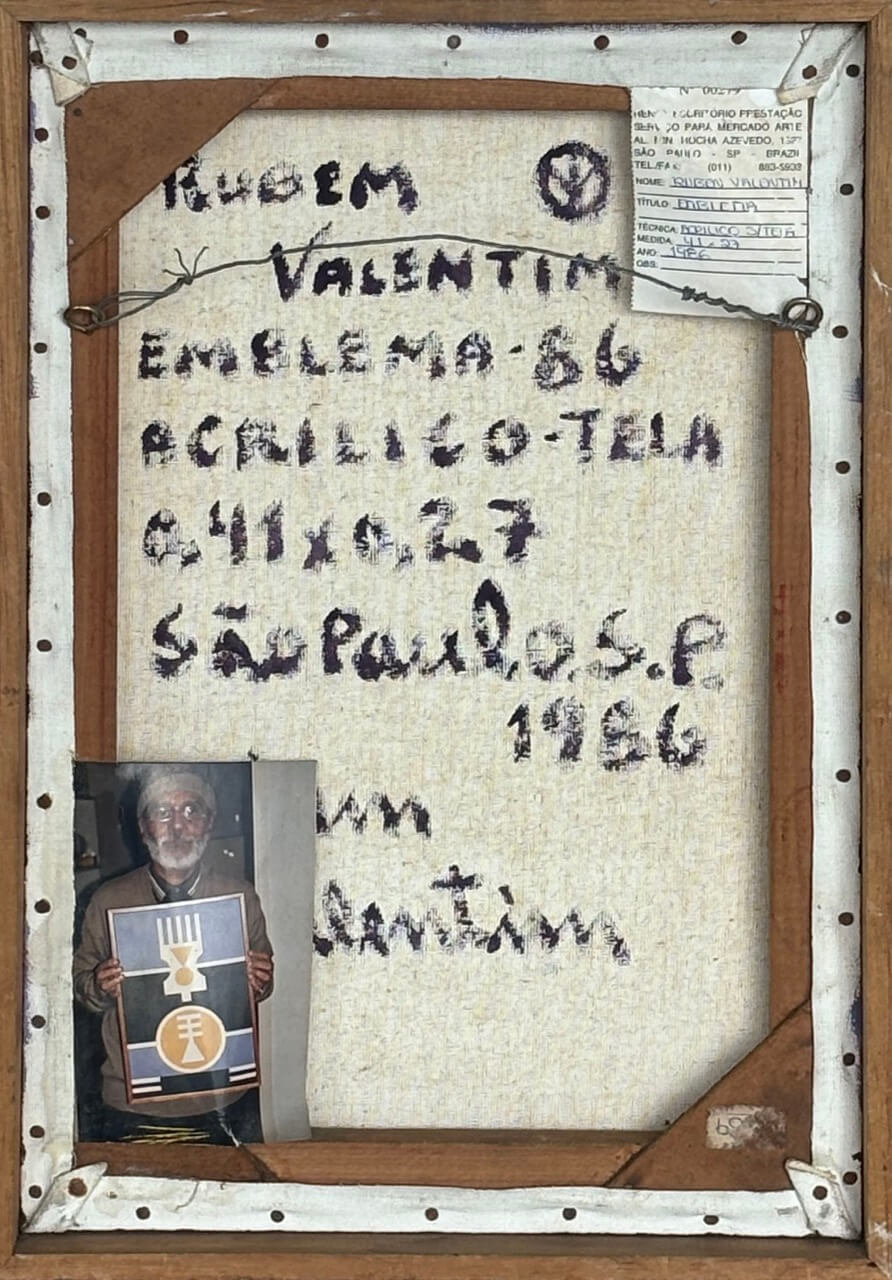 RUBEM
VALENTIM
EMBLEMA-86
ACRILICO-TELA
0,41x0,27
São Paulo.S.P.
1986
entim
Nº
ESCRITÓRIO PRESTAÇÃO
PARA MERCADO ARTE
ROCHA AZEVEDO,
SÃO PAULO - SP - BRAZIL
TEL/FAX (011) 883-5933
NOME: RUBEN VALENTIM
TÍTULO: EMBLEMA
TÉCNICA: ACRILICO S/TELA
MEDIDA: 41 x 27
ANO: 1986
OBS: